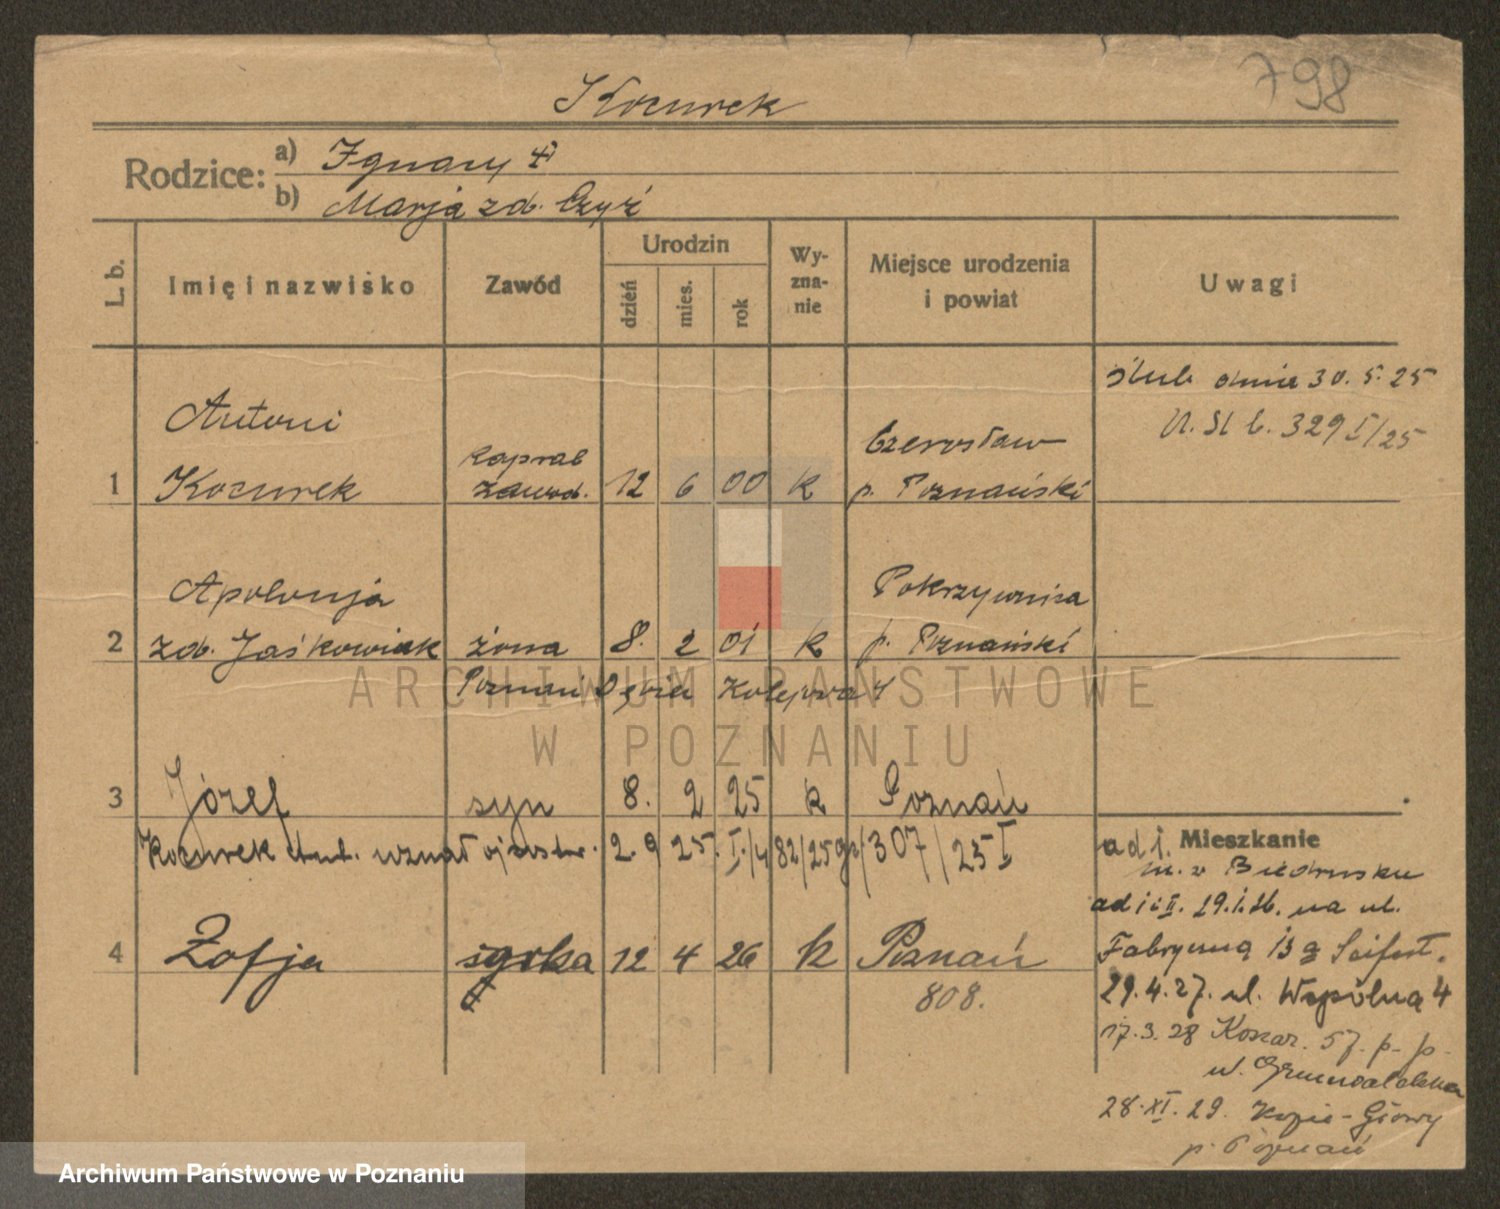 798
Kocurek
Rodzice:
a) Ignacy
b) Marja zd. Czyż
L. b.
Imię i nazwisko
Zawód
Urodzin
dzień
mies.
rok
Wy-
zna-
nie
Miejsce urodzenia
i powiat
Uwagi
ślub dnia 30.5.25
U. St b. 329 I/25
1 Antoni
Kocurek
kapral
zawod. 12 6 00 k
Czerosław
p. Poznański
2 Apolonja
zd. Jaśkowiak żona 8. 2 01 k
Pokrzywnica
p. Poznański
Poznań Dębiec Kolejowa 4
ARCHIWUM PAŃSTWOWE
W POZNANIU
3 Józef syn 8. 2 25 k Poznań
Kocurek uznał 2.9 25. I./482/25 307/25 I
4 Zofja córka 12 4 26 k Poznań
808.
ad 1. Mieszkanie
m. w Biedrusku
ad i i II. 29.1.26. na ul.
Fabryczną 13 Seifert.
29.4.27. ul. Wspólna 4
17.3.28 Koszar. 57. p. p.
ul. Grunwaldzka
28.XI.29. Główny
p. Poznań
Archiwum Państwowe w Poznaniu